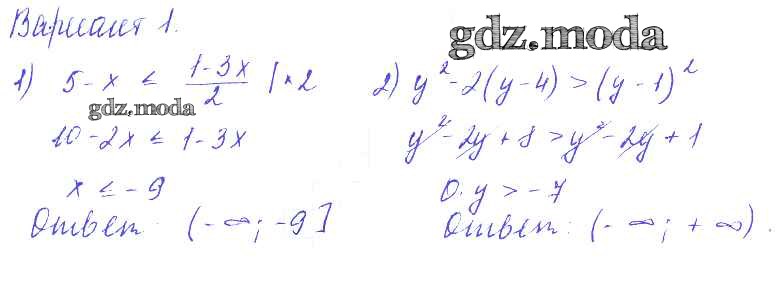 Вариант 1.
gdz.moda
1) 5 - x ≤ \frac{1-3x}{2} | × 2
gdz.moda
10 - 2x ≤ 1 - 3x
x ≤ - 9
Ответ: (- ∞; -9]
2) y² - 2(y - 4) > (y - 1)²
y² - 2y + 8 > y² - 2y + 1
0 · y > - 7
Ответ: (- ∞; + ∞).